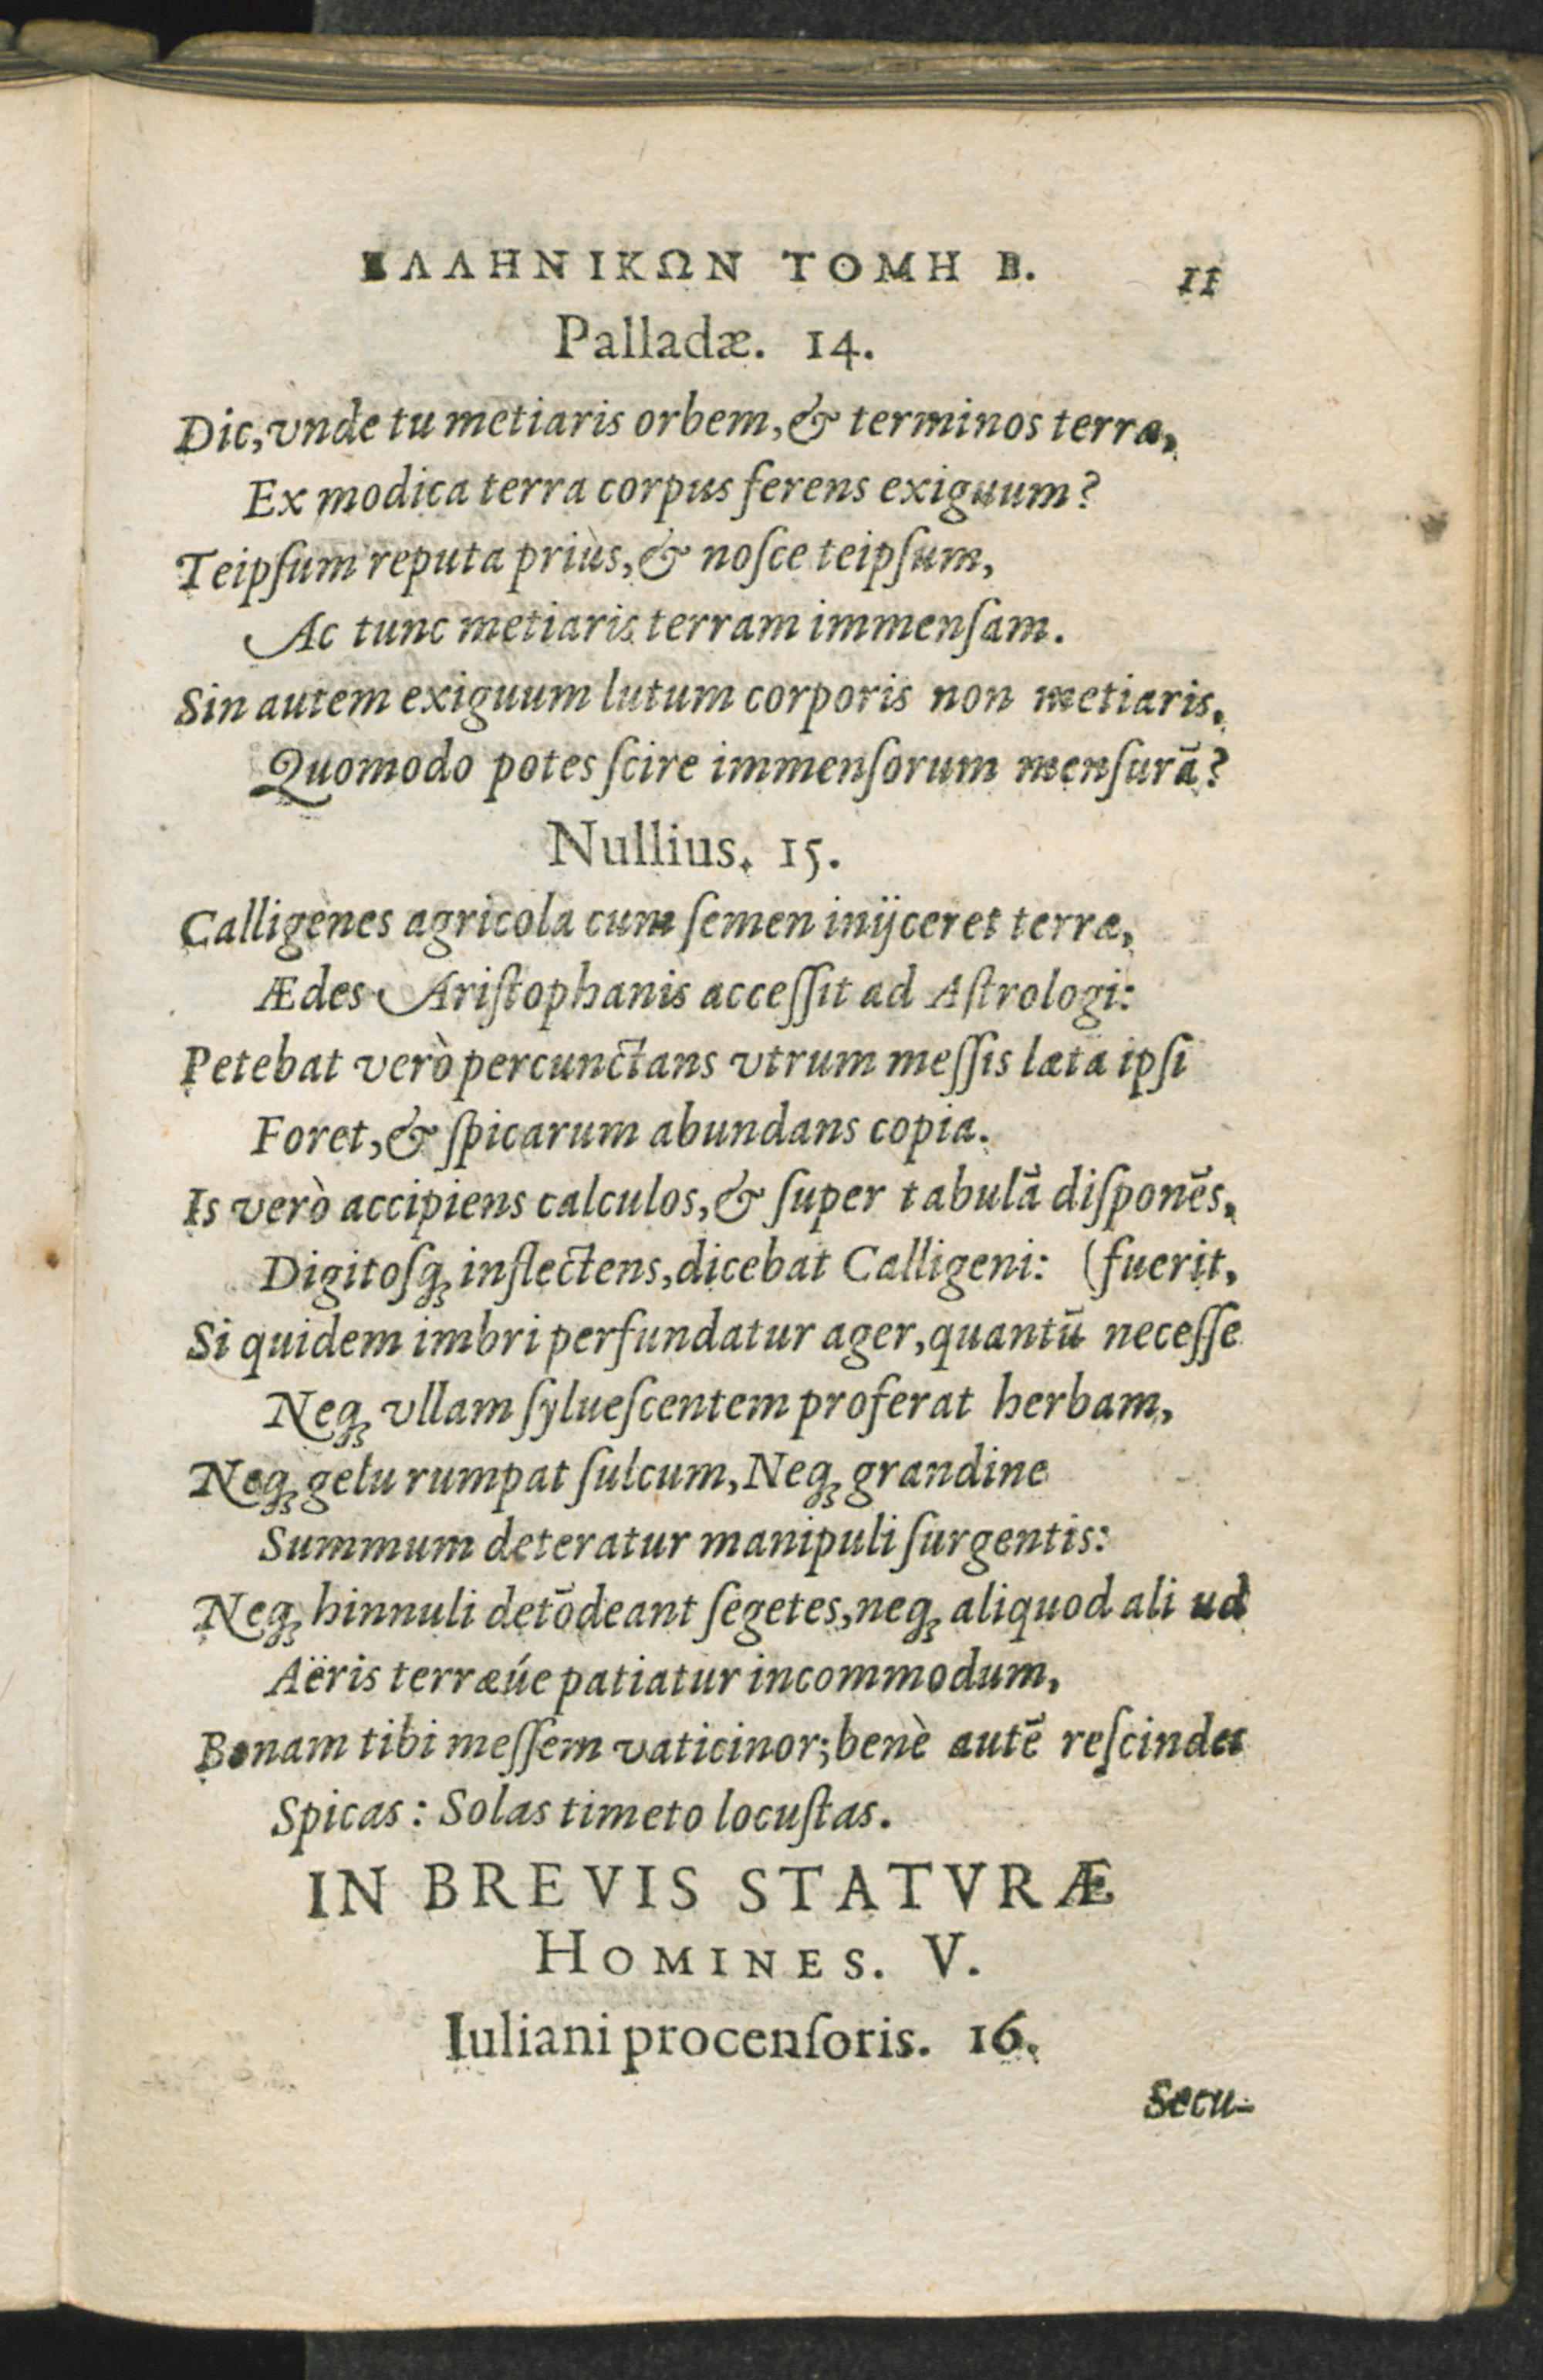 ΕΛΛΗΝΙΚΩΝ ΤΟΜΗ Β. 11
Palladæ. 14.
Dic, vnde tu metiaris orbem, & terminos terræ,
Ex modica terra corpus ferens exiguum?
Teipſum reputa priùs, & noſce teipſum,
Ac tunc metiaris terram immenſam.
Sin autem exiguum lutum corporis non metiaris,
Quomodo potes ſcire immenſorum menſurā?
Nullius. 15.
Calligenes agricola cum ſemen inijceret terræ,
Ædes Ariſtophanis acceſſit ad Aſtrologi:
Petebat verò percunctans vtrum meſſis læta ipſi
Foret, & ſpicarum abundans copia.
Is verò accipiens calculos, & ſuper tabulā diſponēs,
Digitosq́ꝫ inflectens, dicebat Calligeni: (fuerit,
Si quidem imbri perfundatur ager, quantū neceſſe
Neqꝫ vllam ſylueſcentem proferat herbam,
Neqꝫ gelu rumpat ſulcum, Neqꝫ grandine
Summum deteratur manipuli ſurgentis:
Neqꝫ hinnuli detōdeant ſegetes, neqꝫ aliquod ali ud
Aëris terræúe patiatur incommodum,
Bonam tibi meſſem vaticinor; benè autē reſcindes
Spicas: Solas timeto locuſtas.
IN BREVIS STATVRÆ
HOMINES. V.
Iuliani procenſoris. 16.
Secu-